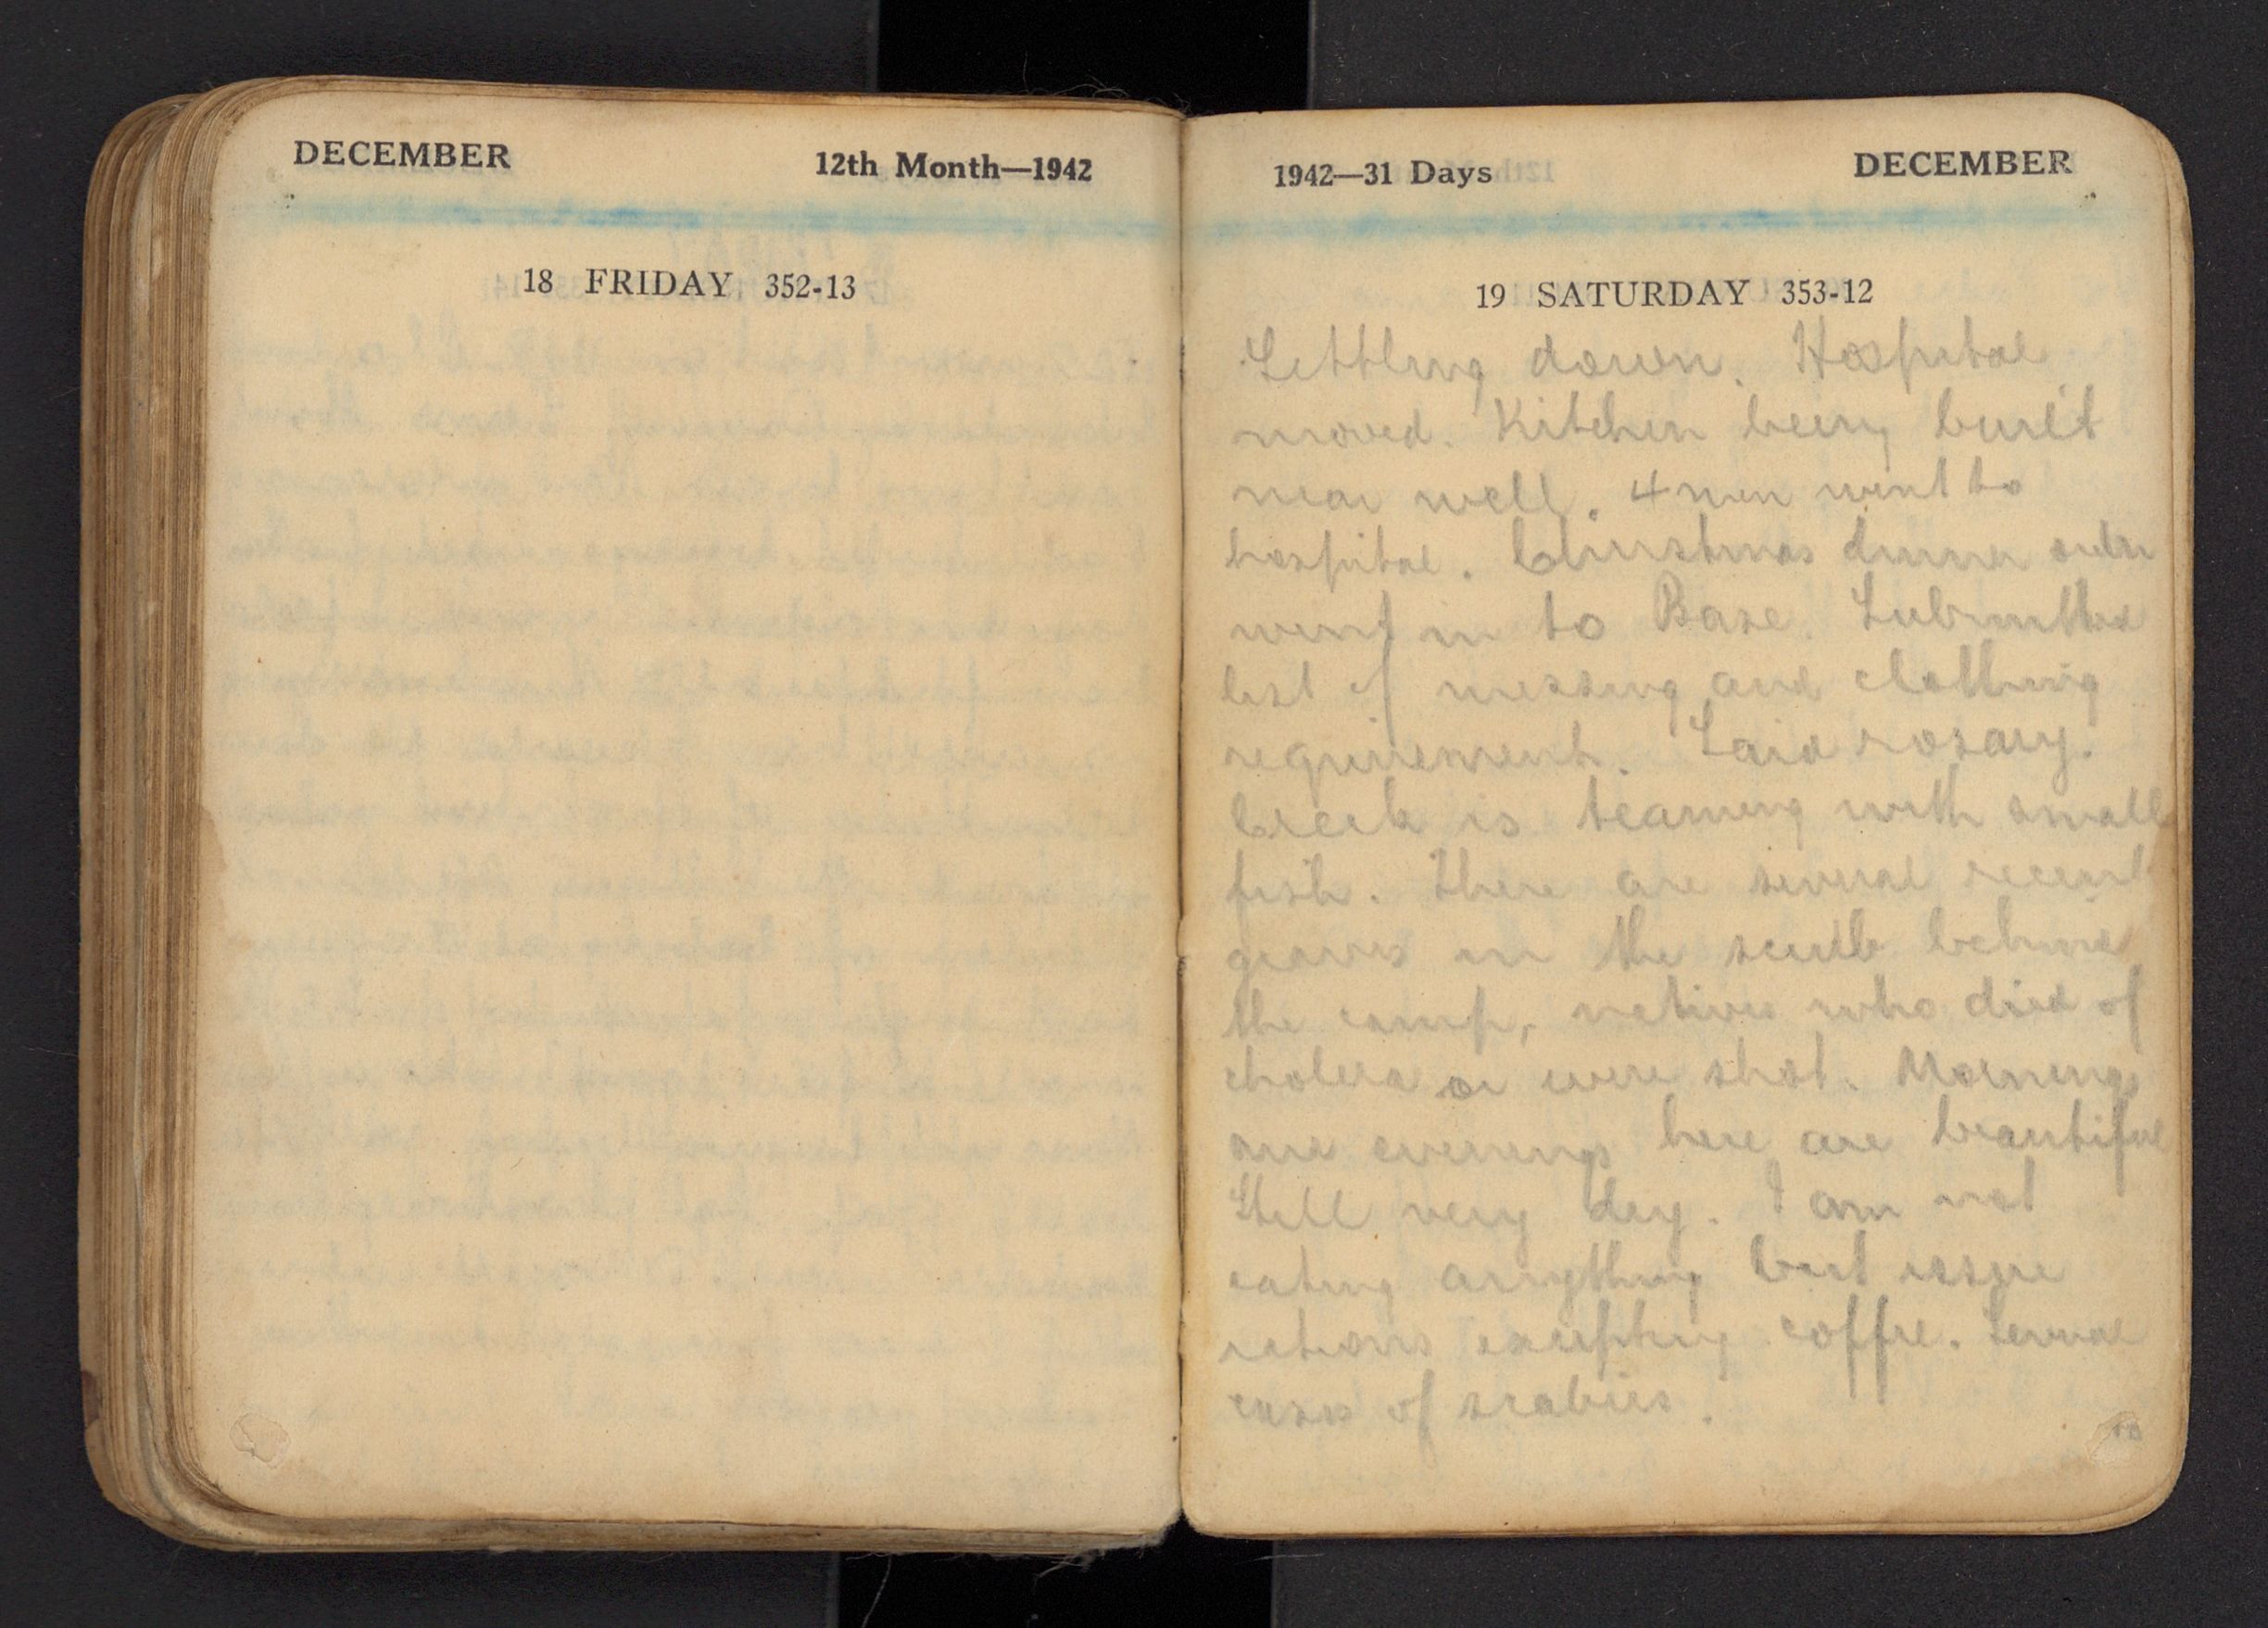 DECEMBER 12th Month—1942
18 FRIDAY 352-13
1942—31 Days DECEMBER
19 SATURDAY 353-12
Settling down. Hospital
moved. Kitchen being built
near well. 4 men went to
hospital. Christmas dinner order
went in to Base. Submitted
list of messing and clothing
requirement. Said rosary.
Creek is teaming with small
fish. There are several recent
graves in the scrub behind
the camp, natives who died of
cholera or were shot. Mornings
and evenings here are beautiful
Still very dry. I am not
eating anything but issue
rations excepting coffee. Several
cases of scabies.